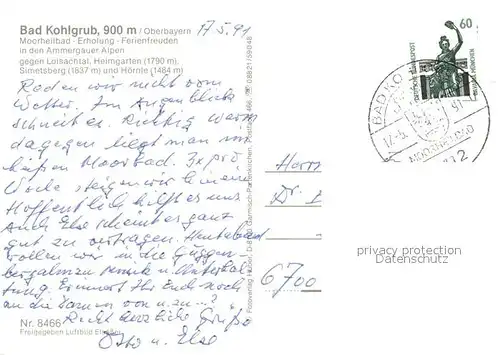 Bad Kohlgrub, 900 m / Oberbayern
Moorheilbad - Erholung - Ferienfreuden
in den Ammergauer Alpen
gegen Loisachtal, Heimgarten (1790 m),
Simetsberg (1837 m) und Hörnle (1484 m)
17.5.91
Reden wir nicht vom
Wetter. Im Augenblick
schneit es. Richtig warm
dagegen liegt man im
heißen Moorbad. 3x pro
Woche steigen wir hinein.
Hoffentlich hilft es uns.
Auch Else scheint es ganz
gut zu vertragen. Heute abend
wollen wir in die Guggen-
bergalm zu Musik u. Unterhal-
tung. Erinnert Ihr Euch noch
an die von u. zu ...?
Recht herzliche Grüße
Otto u. Else
Nr. 8466
Freigegeben Luftbild
D-8100 Garmisch-Partenkirchen, Postfach 466, ☏ 08821/59048
60
DEUTSCHE BUNDESPOST
BAD KO
17.-5.
91
MOORHEILBAD
Herrn
Dr. I
6700
privacy protection
Datenschutz